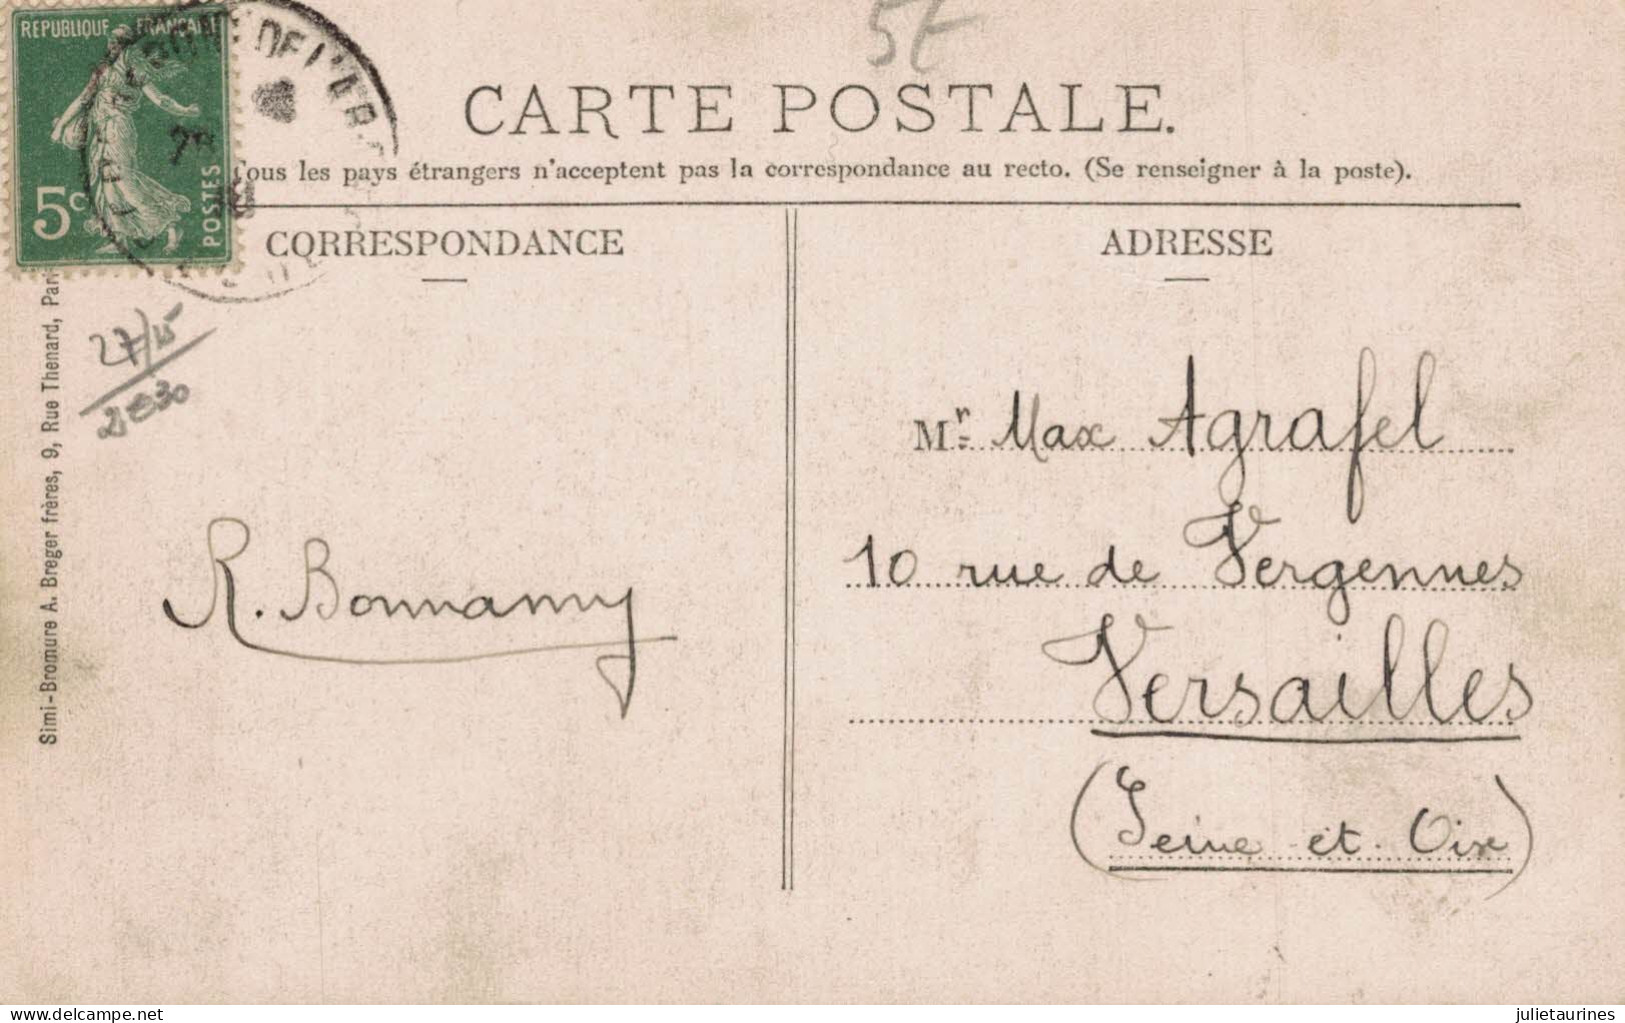 5€
RÉPUBLIQUE FRANÇAISE
5c
POSTES
DE L'
CARTE POSTALE.
Tous les pays étrangers n'acceptent pas la correspondance au recto. (Se renseigner à la poste).
CORRESPONDANCE
ADRESSE
Simi-Bromure A. Breger frères, 9, Rue Thenard, Pari
27/15
Mr. Max Agrafel
10 rue de Vergennes
Versailles
(Seine et Oise)
R. Bonnamy
Delcampe.net
julietaurines